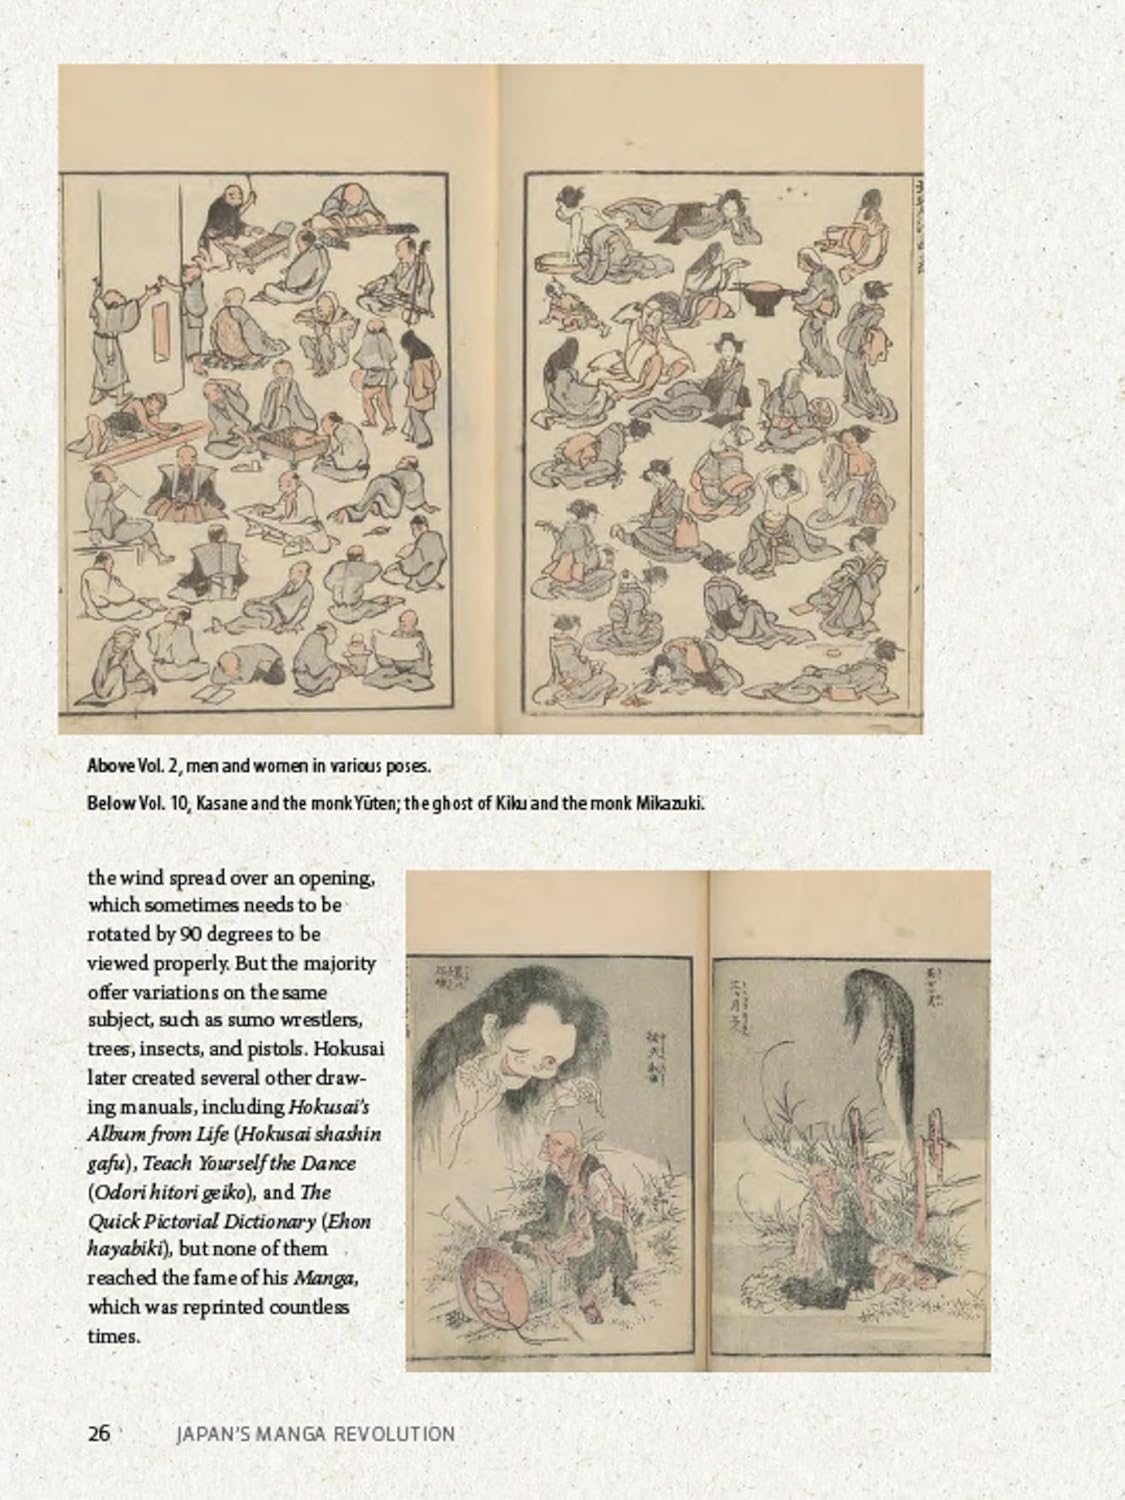 Above Vol. 2, men and women in various poses.
Below Vol. 10, Kasane and the monk Yūten; the ghost of Kiku and the monk Mikazuki.
the wind spread over an opening,
which sometimes needs to be
rotated by 90 degrees to be
viewed properly. But the majority
offer variations on the same
subject, such as sumo wrestlers,
trees, insects, and pistols. Hokusai
later created several other draw-
ing manuals, including Hokusai's
Album from Life (Hokusai shashin
gafu), Teach Yourself the Dance
(Odori hitori geiko), and The
Quick Pictorial Dictionary (Ehon
hayabiki), but none of them
reached the fame of his Manga,
which was reprinted countless
times.
26 JAPAN'S MANGA REVOLUTION